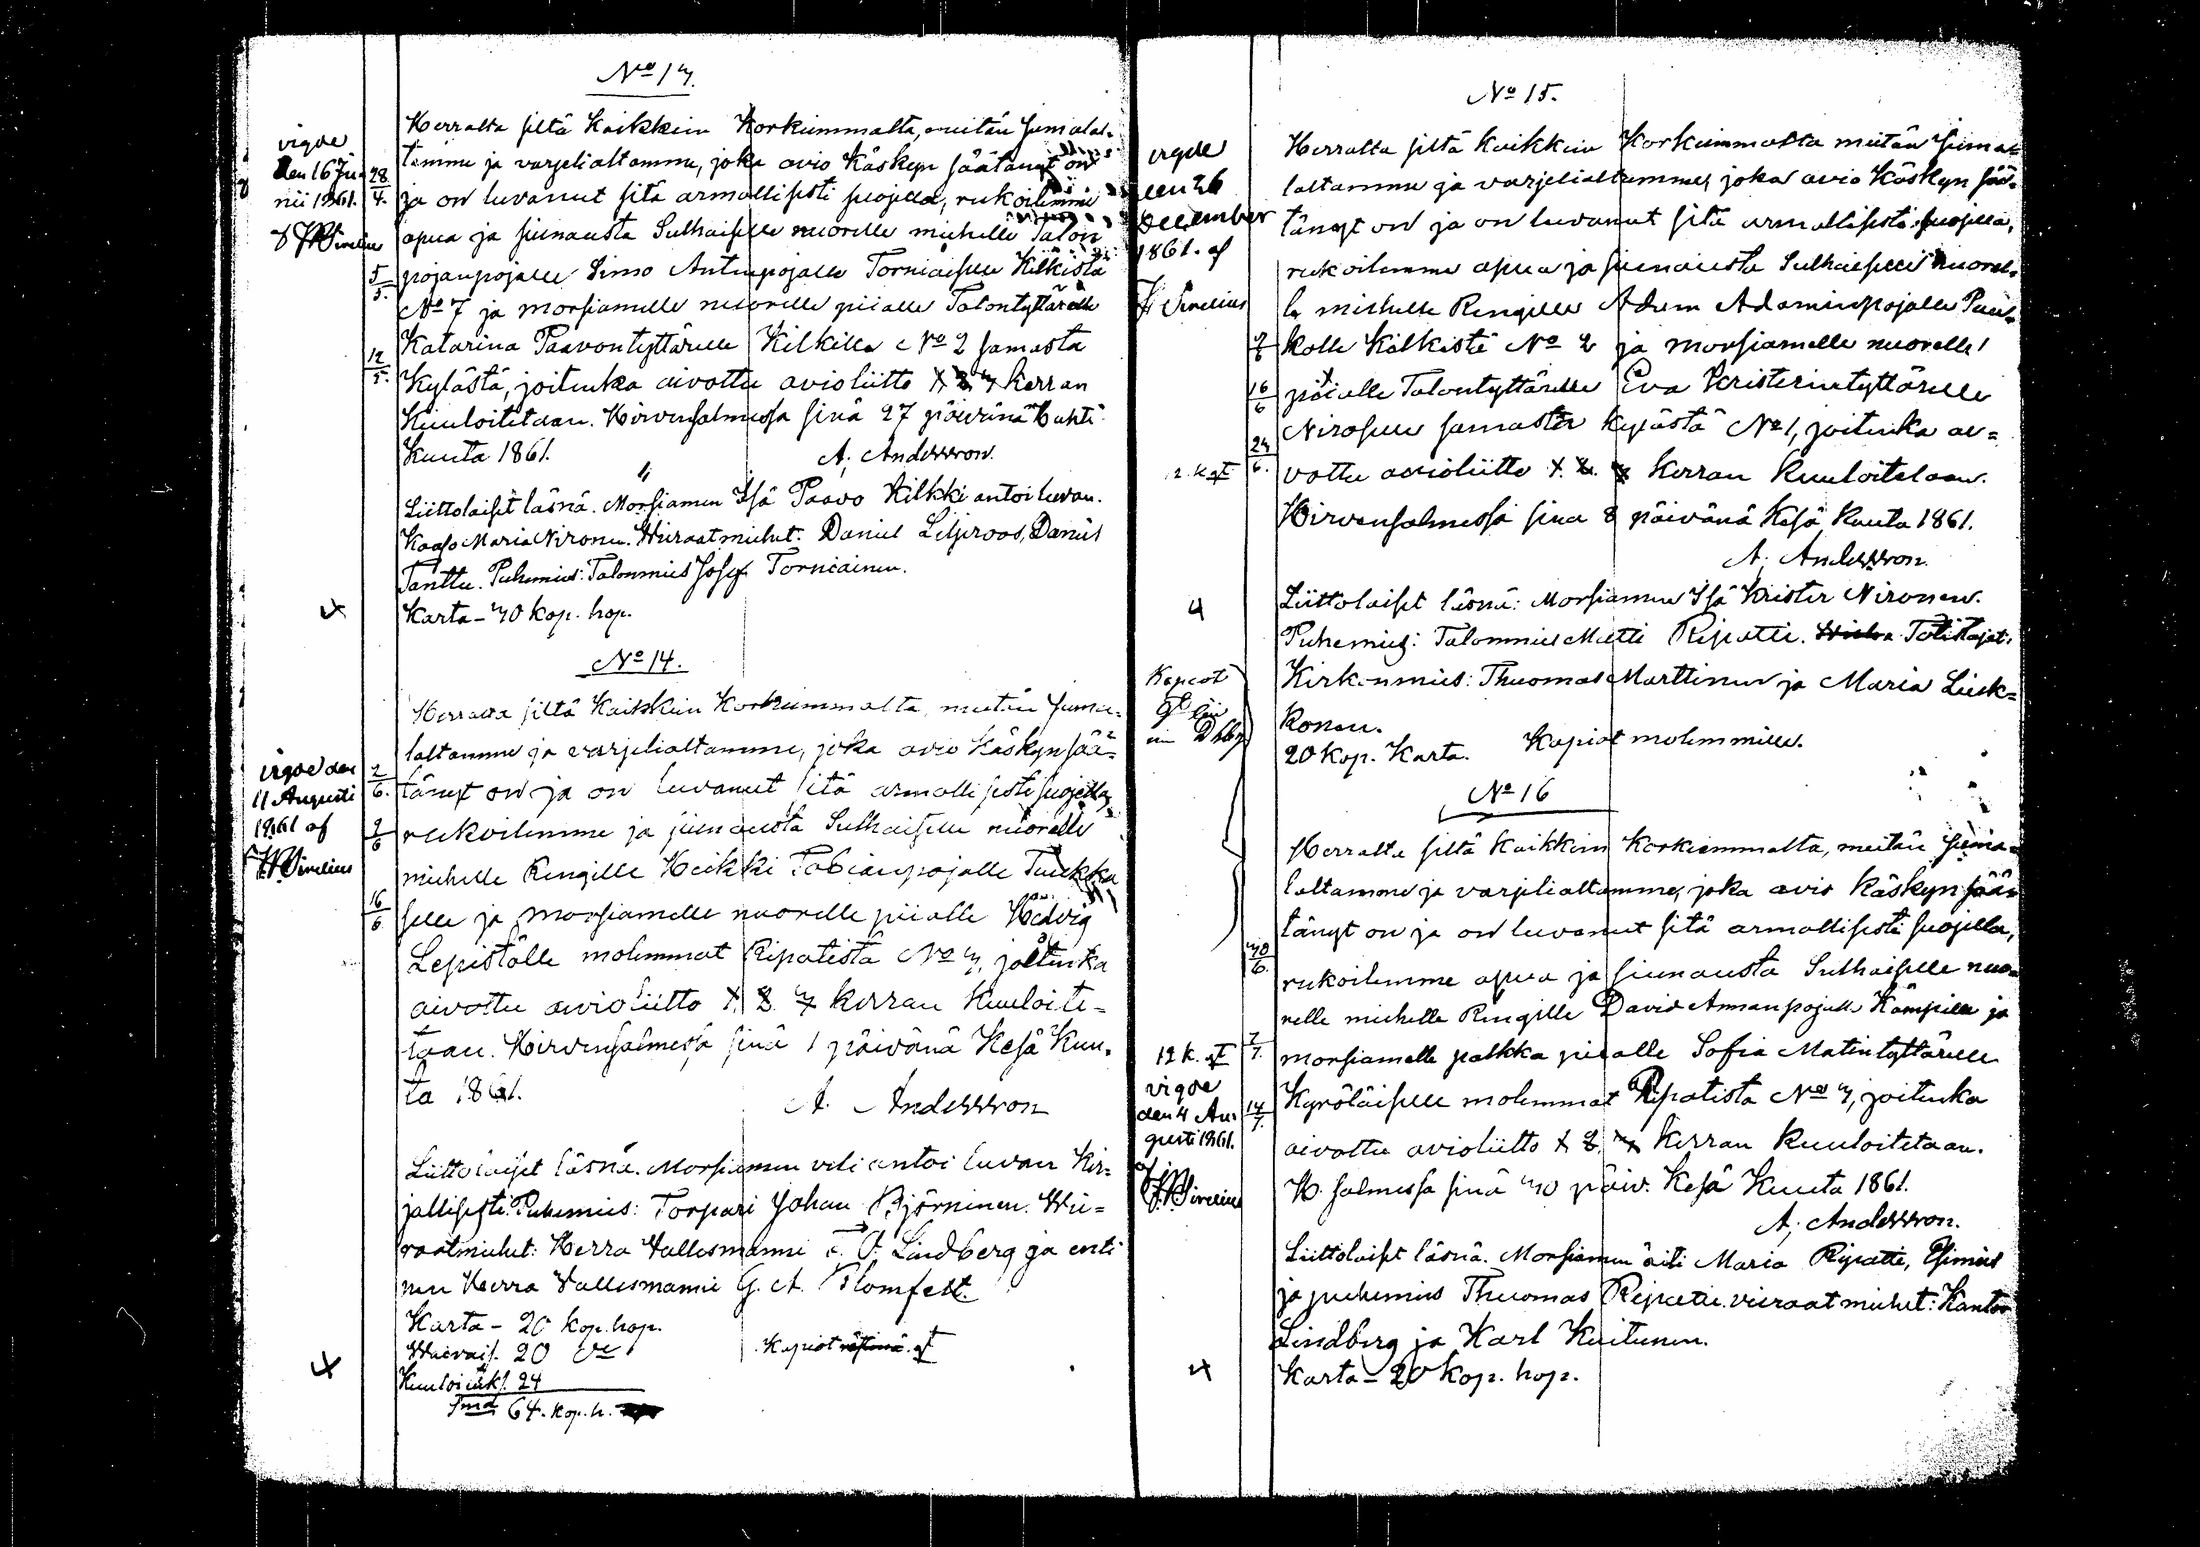 No 13.
vigde
den 16 Ju
nii 1861.
28/4.
5/5.
12/5.
Herralta siltä Kaikkein Korkiimmalta, meitän Jumalal-
tamme ja varjelialtamme, joka avio Käskyn säätänyt on
ja on luvanut sitä armollisesti suojella, rukoilemme
apua ja siunausta Sulhaiselle nuorelle miehelle Talon
pojanpojalle Simo Antinpojalle Torniaiselle Kilkistä
No 7 ja morsiamelle nuorelle piialle Talontyttärelle
Katarina Paavontyttärelle Kilkille No 2 samasta
Kylästä, joitenka aivottu avioliitto 1 2 3 kerran
Kuuloitetaan. Hirvensalmessa sinä 27 päivänä Huhti
Kuuta 1861. A. Andersson.
Liittolaiset läsnä. Morsiamen Isä Paavo Kilkki antoi luvan.
Kaaso Maria Nironen. Wieraatmiehet: Daniel Liljeroos, Daniel
Tanttu. Puhemies: Talonmies Josef Torniainen.
Karta - 30 kop. hop.
No 14.
vigde den
11 Augusti
1861 af
2/6.
9/6
16/6
Herralta siltä Kaikkein Korkiimmalta, meitän Juma-
laltamme ja varjelialtamme, joka avio Käskyn sää-
tänyt on ja on luvanut sitä armollisesti suojella,
rukoilemme ja siunausta Sulhaiselle nuorelle
miehelle Rengille Heikki Tobianpojalle Tuukka
selle ja morsiamelle nuorelle piialle Hedvig
Lepistölle molemmat Ripatista No 3, joitenka
aivottu avioliitto 1. 2 3 kerran Kuuloite-
taan. Hirvensalmessa sinä 1 päivänä Kesä Kuu-
ta 1861.
A. Andersson
Liittolaiset läsnä. Morsiamen veli antoi luvan Kir-
jallisesti. Puhemies: Torpari Johan Björninen. Wie-
raatmiehet: Herra Vallesmanni Lindberg ja enti
nen Herra Vallesmanni G. A. Blomfelt.
Karta - 20 kop. hop.
Waevais. 20
Kuuloituks. 24
Sma 64. kop. h.
Kapiot
No 15.
vigde
den 26
December
1861. af
Sirelius
9/6
16/6
24/6.
Herralta siltä Kaikkein Korkeimmasta meitän Juma-
laltamme ja varjelialtamme, joka avio Käskyn sää-
tänyt on ja on luvanut sitä armollisesti suojella,
rukoilemme apua ja siunausta Sulhaiselle nuorel-
le miehelle Rengille Adam Adaminpojalle Puuk-
kolle Kilkistä No 2 ja morsiamelle nuorelle
piialle Talontyttärelle Eva Kristerintyttärelle
Niroselle samasta kylästä No 1, joitenka ai-
vottu avioliitto 1. 2. 3 kerran Kuuloitetaan.
Hirvensalmessa sinä 8 päivänä Kesä Kuuta 1861.
A. Andersson.
Liittolaiset läsnä: Morsiamen Isä Krister Nironen.
Puhemies: Talonmies Matti Ripatti. Totistajat:
Kirkonmies: Thuomas Marttinen ja Maria Liuk-
konen.
20 kop. Karta. Kapiot molemmille.
Kapiot
No 16
30/6.
7/7.
14/7.
12 k.
vigde
den 4 Au
gusti 1861.
af
Herralta siltä Kaikkein Korkiimmalta, meitän Juma-
laltamme ja varjelialtamme, joka avio Käskyn sää-
tänyt on ja on luvanut sitä armollisesti suojella,
rukoilemme apua ja siunausta Sulhaiselle nuo-
relle miehelle Rengille David Annanpojalle Kämpille ja
morsiamelle palkka piialle Sofia Matintyttärelle
Kyröläiselle molemmat Ripatista No 3, joitenka
aivottu avioliitto 1 2. 3 kerran Kuuloitetaan.
H. salmessa sinä 30 päiv. Kesä Kuuta 1861.
A. Andersson.
Liittolaiset läsnä. Morsiamen äiti Maria Ripatti, Esimies
ja puhemies Thuomas Ripatti. vieraat miehet: Kantor
Lindberg ja Karl Kuitunen.
Karta - 20 kop. hop.